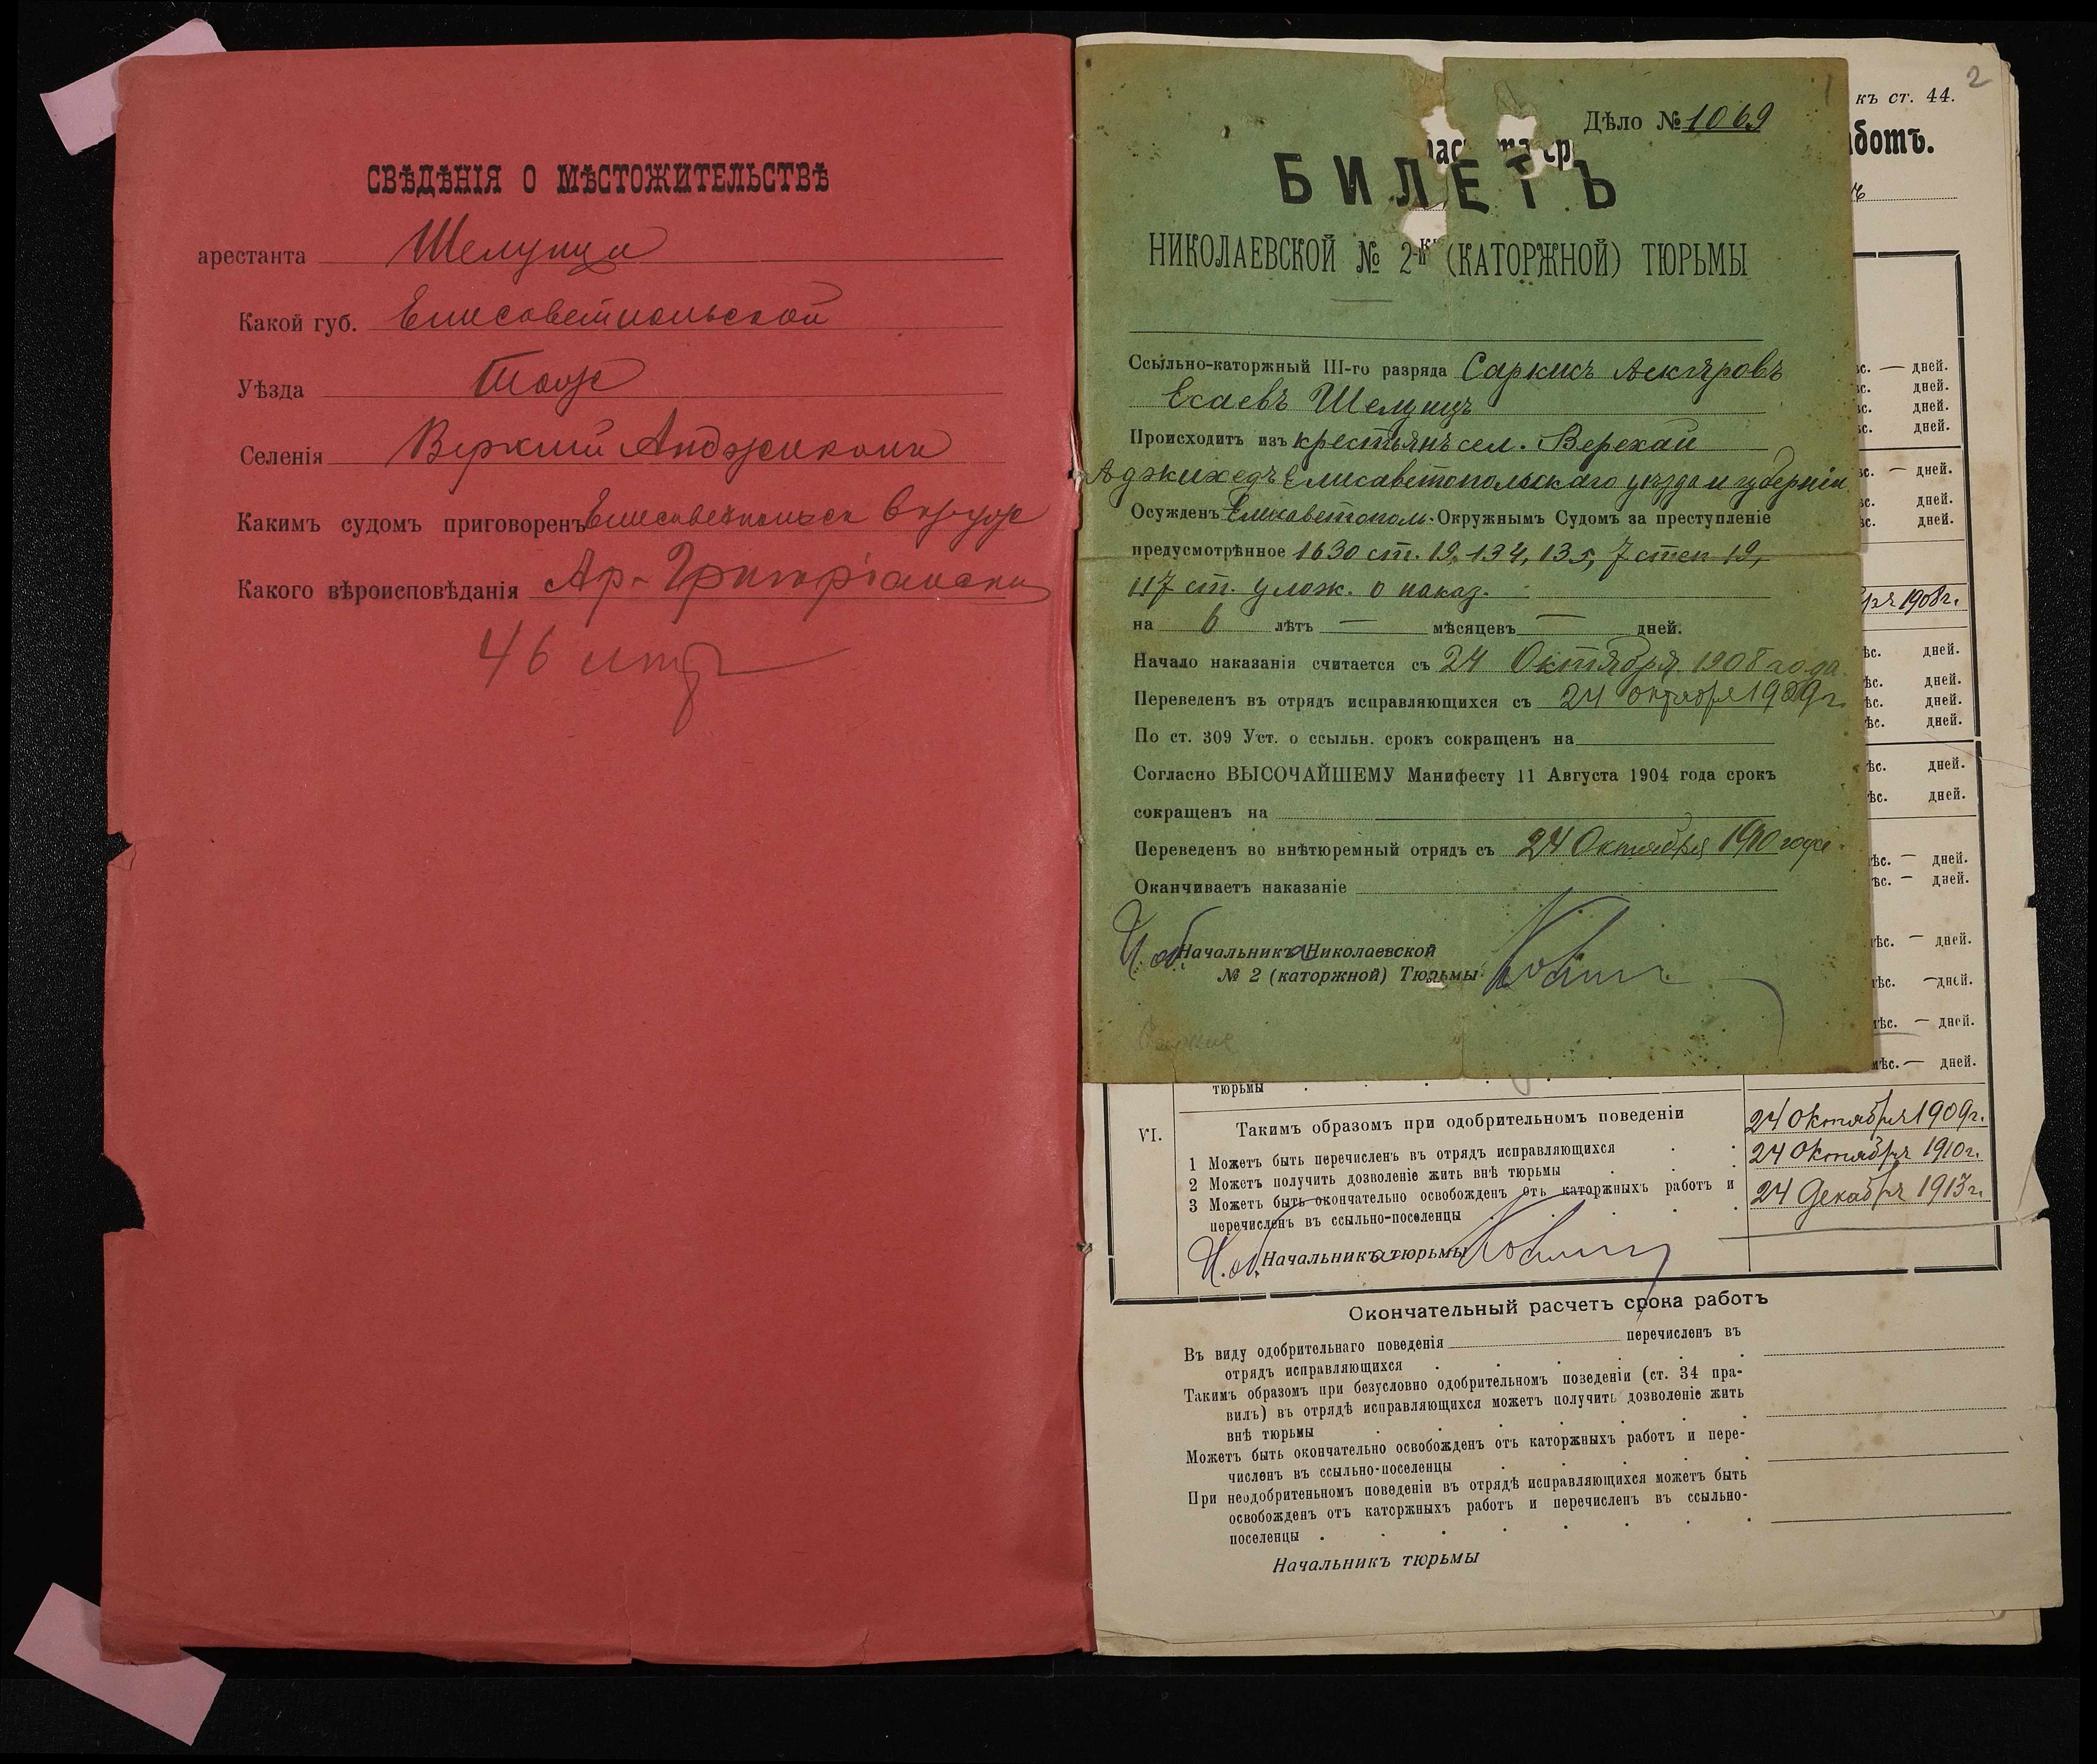 СВѢДѢНІЯ О МѢСТОЖИТЕЛЬСТВѢ
арестанта Шелунца
Какой губ. Елисаветпольской
Уѣзда Тоже
Селенія Верхній
Какимъ судомъ приговоренъ Елисаветпольск
Какого вѣроисповѣданія Ар-Григоріански
46 литр
Дѣло № 1069
БИЛЕТЪ
НИКОЛАЕВСКОЙ № 2-й (КАТОРЖНОЙ) ТЮРЬМЫ
Ссыльно-каторжный III-го разряда Саркисъ Аскяровъ
Есаевъ Шелунцъ
Происходитъ изъ крестьянъ сел. Верехай
Аджикедъ Елисаветопольскаго уѣзда и губерніи
Осужденъ Елисаветополь. Окружнымъ Судомъ за преступленіе
предусмотрѣнное 1630 ст. 19, 134, 135, 7 степ 19,
117 ст. улож. о наказ.
на 6 лѣтъ — мѣсяцевъ — дней.
Начало наказанія считается съ 24 Октября 1908 года
Переведенъ въ отрядъ исправляющихся съ 24 октября 1909 г.
По ст. 309 Уст. о ссыльн. срокъ сокращенъ на
Согласно ВЫСОЧАЙШЕМУ Манифесту 11 Августа 1904 года срокъ
сокращенъ на
Переведенъ во внѣтюремный отрядъ съ 24 Октября 1910 года.
Оканчиваетъ наказаніе
И. об. Начальника Николаевской
№ 2 (каторжной) Тюрьмы
2
къ ст. 44.
ботъ.
с. — дней.
с. дней.
с. дней.
с. дней.
с. — дней.
с. дней.
с. дней.
бря 1908 г.
ѣс. дней.
ѣс. дней.
ѣс. дней.
ѣс. дней.
ѣс. дней.
ѣс. дней.
ѣс. — дней.
ѣс. — дней.
ѣс. — дней.
ѣс. — дней.
ѣс. — дней.
мѣс. — дней.
тюрьмы
VI. Такимъ образомъ при одобрительномъ поведеніи
1 Можетъ быть перечисленъ въ отрядъ исправляющихся 24 Октября 1909 г.
2 Можетъ получить дозволеніе жить внѣ тюрьмы 24 Октября 1910 г.
3 Можетъ быть окончательно освобожденъ отъ каторжныхъ работъ и 24 Декабря 1913 г.
перечисленъ въ ссыльно-поселенцы
И. об. Начальника тюрьмы
Окончательный расчетъ срока работъ
Въ виду одобрительнаго поведенія перечисленъ въ
отрядъ исправляющихся
Такимъ образомъ при безусловно одобрительномъ поведеніи (ст. 34 пра-
вилъ) въ отрядѣ исправляющихся можетъ получить дозволеніе жить
внѣ тюрьмы
Можетъ быть окончательно освобожденъ отъ каторжныхъ работъ и пере-
численъ въ ссыльно-поселенцы
При неодобрительномъ поведеніи въ отрядѣ исправляющихся можетъ быть
освобожденъ отъ каторжныхъ работъ и перечисленъ въ ссыльно-
поселенцы
Начальникъ тюрьмы